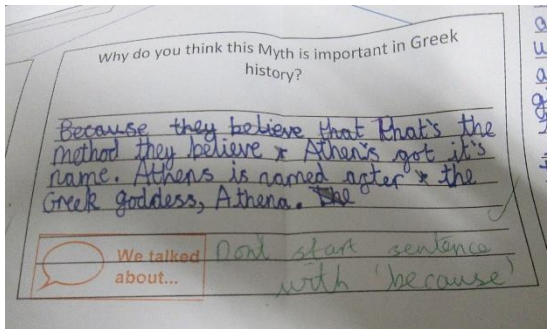 Why do you think this Myth is important in Greek
history?
Because they believe that that's the
method they believe * Athen's got it's
name. Athens is named agter * the
Greek goddess, Athena. The
We talked
about...
Dont start sentence
with 'because'